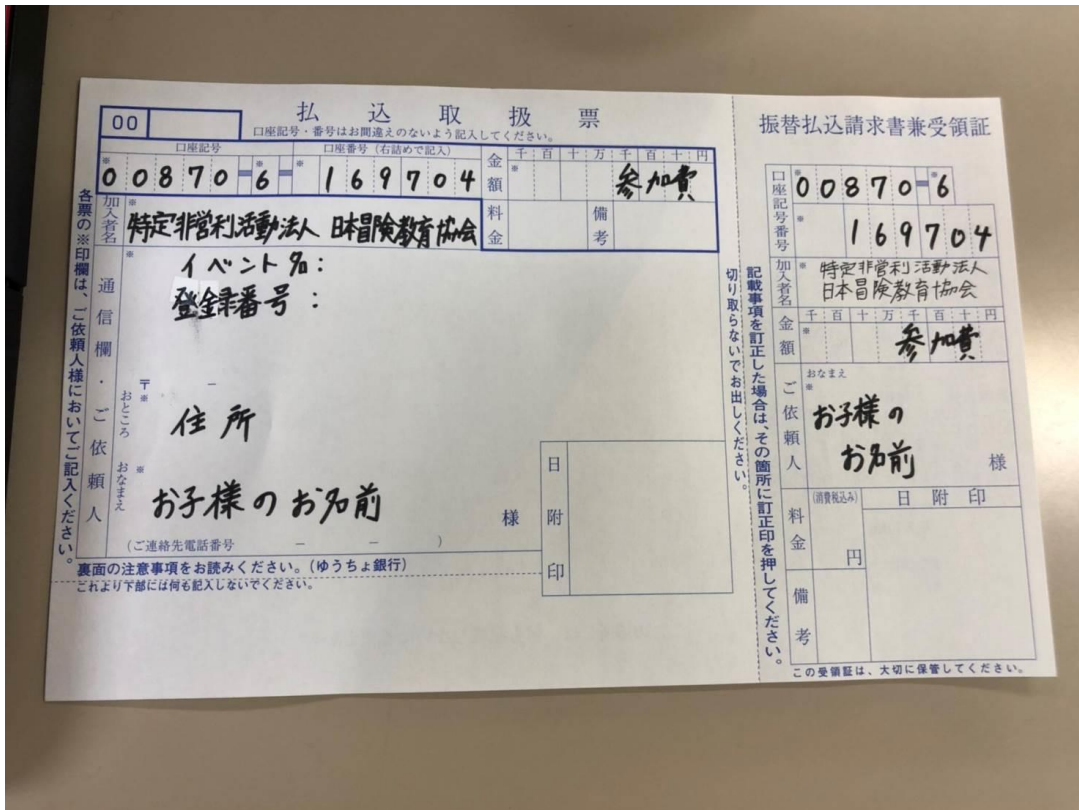 払込取扱票
00
口座記号・番号はお間違えのないよう記入してください。
口座記号 口座番号(右詰めで記入)
※ ※ ※
00870-6-169704
金額 千百十万千百十円
※
参加費
加入者名
※
特定非営利活動法人 日本冒険教育協会
料金 備考
通信欄・ご依頼人
※
イベント名:
登録番号:
〒 -
おところ ※
住所
おなまえ ※
お子様のお名前
様
(ご連絡先電話番号 - - )
日附印
裏面の注意事項をお読みください。(ゆうちょ銀行)
これより下部には何も記入しないでください。
各票の※印欄は、ご依頼人様においてご記入ください。
切り取らないでお出しください。
記載事項を訂正した場合は、その箇所に訂正印を押してください。
振替払込請求書兼受領証
口座記号番号
※ ※
00870-6
※
169704
加入者名
※
特定非営利活動法人
日本冒険教育協会
金額 千百十万千百十円
※
参加費
ご依頼人
おなまえ
※
お子様の
お名前
様
料金 (消費税込み) 円
日附印
備考
この受領証は、大切に保管してください。